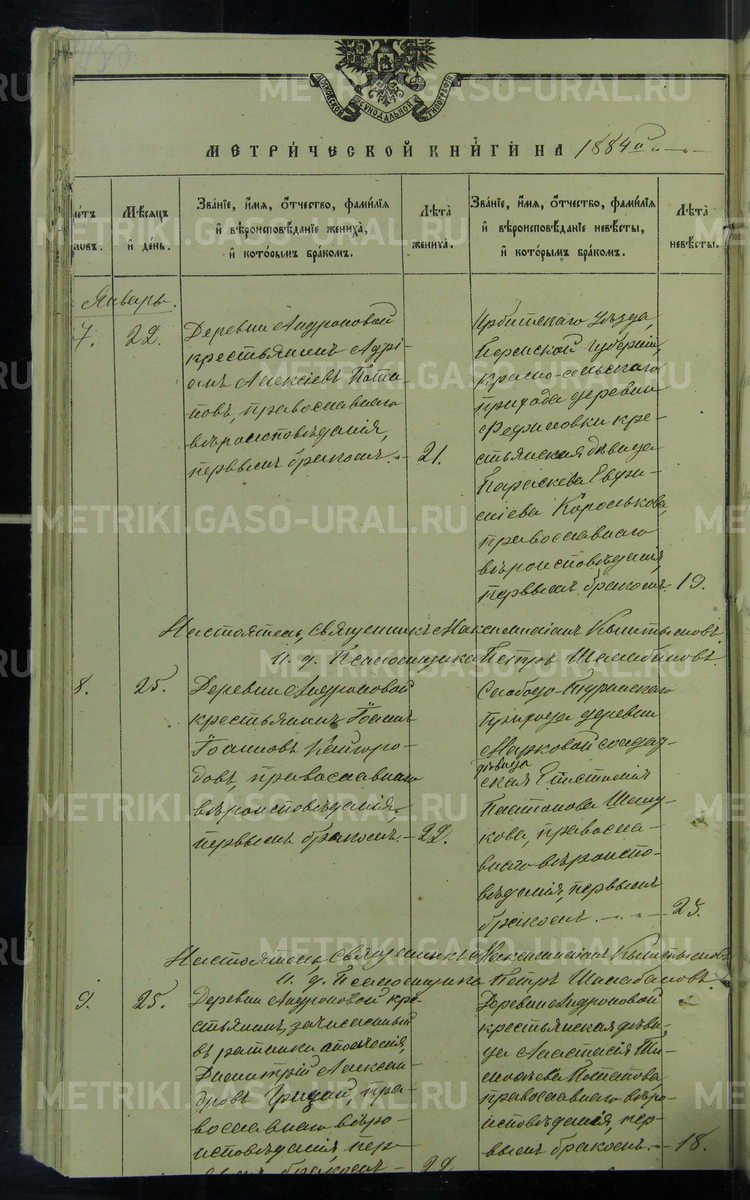 МОСКОВСКОЙ СУНОДАЛЬНОЙ ТИПОГРАФІИ
МЕТРИ́ЧЕСКОЙ КНИ́ГИ НА 1884й
Мѣ́сяцъ и день.
Зва́нїе, и́мя, о́тчество, фами́лїя и вѣроисповѣ́данїе жениха̀, и кото́рымъ бра́комъ.
Лѣ́та жениха̀.
Зва́нїе, и́мя, о́тчество, фами́лїя и вѣроисповѣ́данїе невѣ́сты, и кото́рымъ бра́комъ.
Лѣ́та невѣ́сты.
Январь.
7.
22.
Деревни Андроновой
крестьянинъ Адрі-
анъ Алексіевъ Пота-
повъ, православнаго
вѣроисповѣданія,
первымъ бракомъ.
21.
Ирбитскаго уѣзда,
Пермской губерніи,
Красно-сельскаго
прихода деревни
кре-
стьянская дѣвица
Параскева
Королькова,
православнаго
вѣроисповѣданія,
первымъ бракомъ
19.
Настоятель, Священникъ Максимиліанъ
И. д. Псаломщика Петръ Шалабановъ.
8.
25.
Деревни Андроновой
крестьянинъ Іоаннъ
Іоанновъ Кайгоро-
довъ, православнаго
вѣроисповѣданія,
первымъ бракомъ.
22.
Слободо-Туринскаго
прихода деревни
Марковой солдат-
дѣвица
ская
православ-
наго вѣроиспо-
вѣданія, первымъ
бракомъ.
23.
Настоятель, Священникъ Максимиліанъ
И. д. Псаломщика Петръ Шалабановъ.
9.
25.
Деревни Андроновой кре-
стьянинъ, зачисленный
въ ратники ополченія,
Димитрій Алексан-
дровъ пра-
вославнаго вѣро-
исповѣданія, пер-
вымъ бракомъ
22
Деревни Андроновой
крестьянская дѣви-
ца Анастасія Ти-
моѳеева Потапова,
православнаго вѣро-
исповѣданія, пер-
вымъ бракомъ.
18.
METRIKI.GASO-URAL.RU